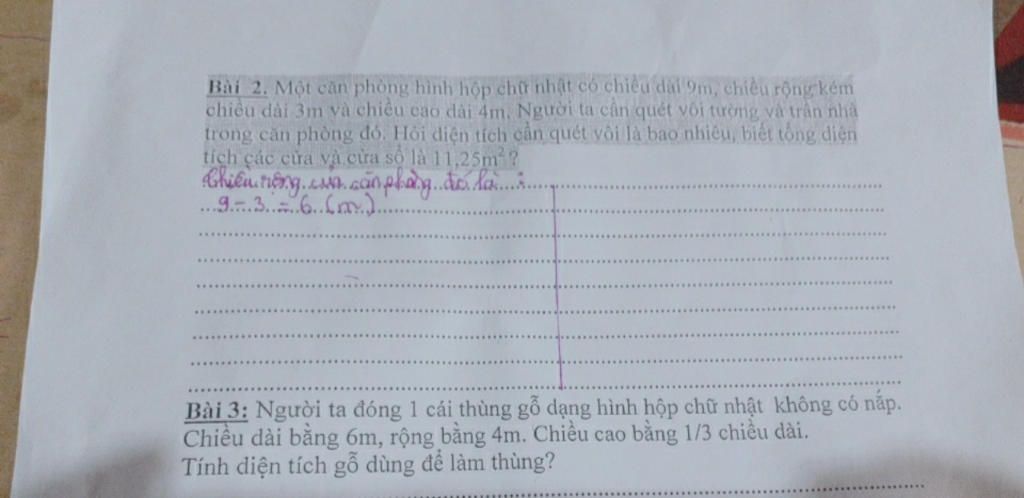 Bài 2. Một căn phòng hình hộp chữ nhật có chiều dài 9m, chiều rộng kém
chiều dài 3m và chiều cao dài 4m. Người ta cần quét vôi tường và trần nhà
trong căn phòng đó. Hỏi diện tích cần quét vôi là bao nhiêu, biết tổng diện
tích các cửa và cửa sổ là 11,25m²?
Chiều rộng của căn phòng đó là :
9 - 3 = 6 (m)
Bài 3: Người ta đóng 1 cái thùng gỗ dạng hình hộp chữ nhật không có nắp.
Chiều dài bằng 6m, rộng bằng 4m. Chiều cao bằng 1/3 chiều dài.
Tính diện tích gỗ dùng để làm thùng?